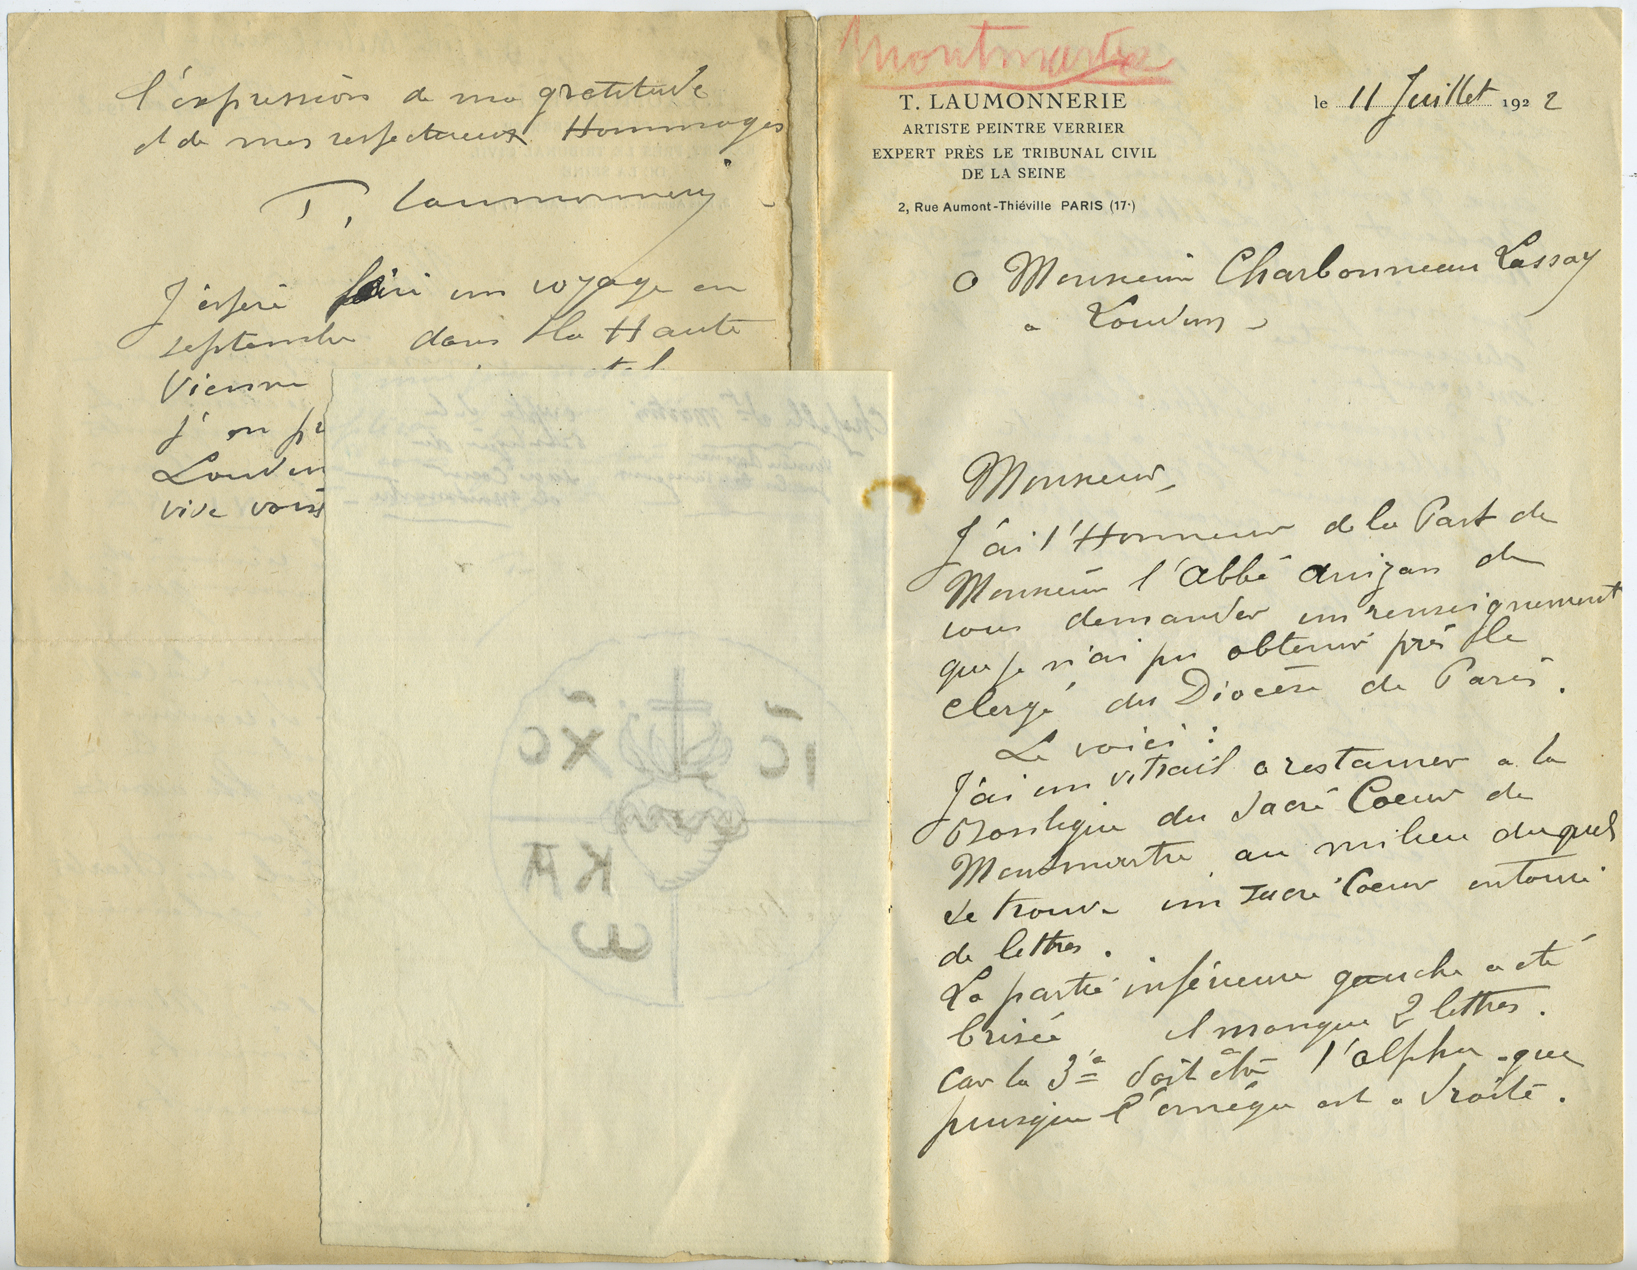 l'expression de ma gratitude
et de mes respectueux Hommages
T. Laumonnerie
J'espère faire un voyage en
septembre dans la Haute
Vienne
j' en
Loudun
vive voix
Chapelle St Martin
IC XC
KA
ω
Montmartre
T. LAUMONNERIE
ARTISTE PEINTRE VERRIER
EXPERT PRÈS LE TRIBUNAL CIVIL
DE LA SEINE
2, Rue Aumont-Thiéville PARIS (17e)
le 11 Juillet 1922
a Monsieur Charbonneau Lassay
a Loudun
Monsieur,
J'ai l'Honneur de la Part de
Monsieur l'Abbé Anizan de
vous demander un renseignement
que je n'ai pu obtenir près le
clergé du Diocèse de Paris.
Le voici :
J'ai un vitrail a restaurer a la
Basilique du Sacré Coeur de
Montmartre au milieu duquel
se trouve un Sacré Coeur entouré
de lettres.
La partie inférieure gauche a été
brisée il manque 2 lettres.
car la 3e doit être l'alpha que
puisque l'oméga est a droite.